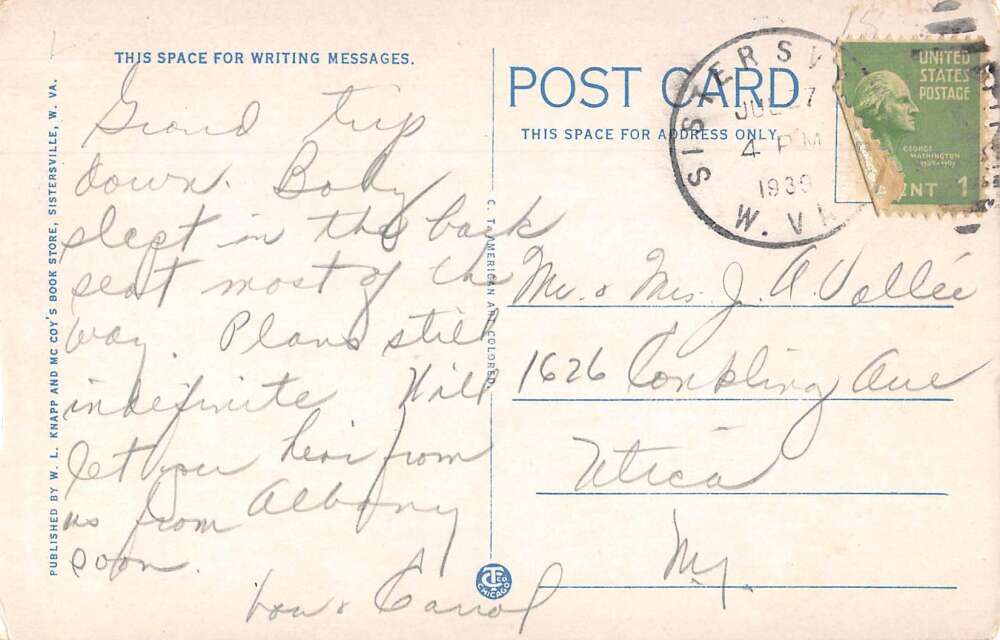 THIS SPACE FOR WRITING MESSAGES.
Grand trip
down. Baby
slept in the back
seat most of the
way. Plans still
indefinite. Will
let you hear from
us from Albany
soon.
Lou & Carrol
PUBLISHED BY W. L. KNAPP AND MC COY'S BOOK STORE, SISTERSVILLE, W. VA.
C. T. AMERICAN ART COLORED.
CT CO
CHICAGO
POST CARD
THIS SPACE FOR ADDRESS ONLY
SISTERSV
JUL 7
4 PM
W. VA
UNITED
STATES
POSTAGE
GEORGE
WASHINGTON
CENT 1
Mr. & Mrs. J. A. Vallée
1626 Conkling Ave
Utica
N.Y.